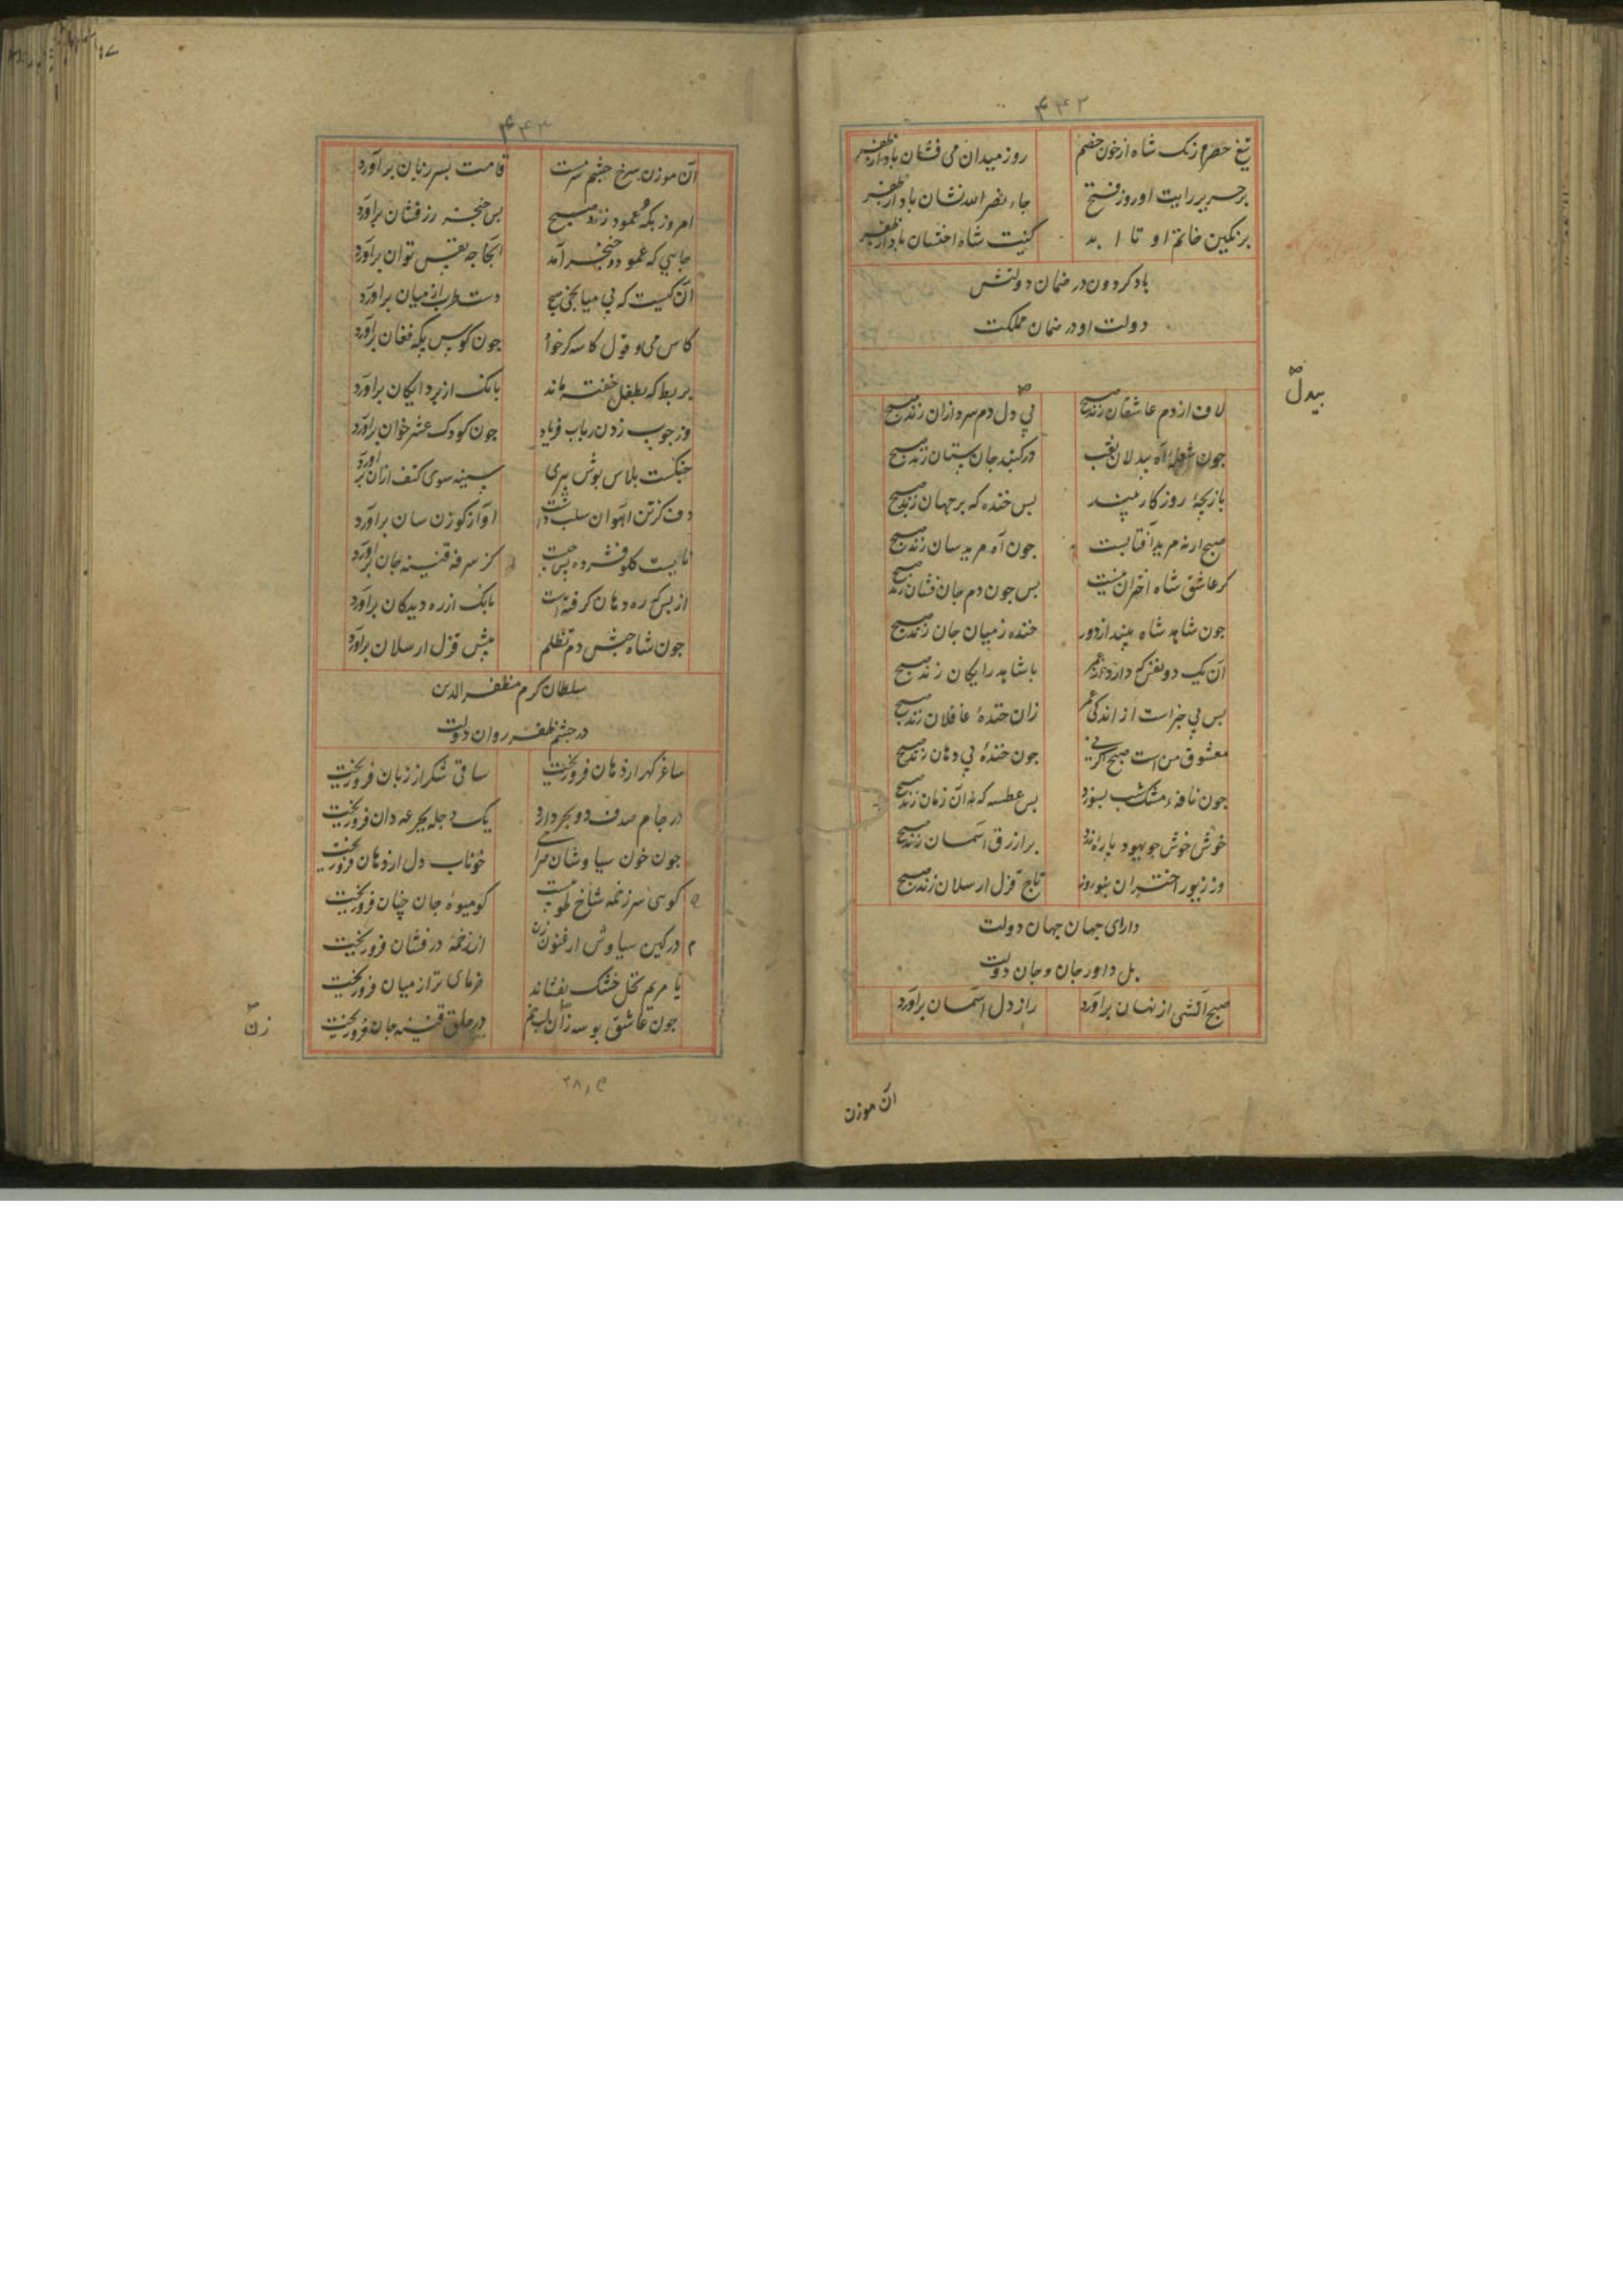 ۴۴۲
تیغ خضرا رنک شاه از خون خصم روز میدان می فشان باد از ظفر
بر حریر رایت او روز فتح جاء نصر الله نشان باد از ظفر
بر نکین خاتم او تا ابد کنیت شاه اخستان باد از ظفر
باد کردون در ضمان دولتش
دولت او در ضمان مملکت
لاف از دم عاشقان زند صبح بی دل دم سرد ازان زند صبح
بیدل
جون شعلهٔ آه بیدلان نقب در کنبد جان ستان زند صبح
بازیچهٔ روزکار بیند بس خنده که بر جهان زند صبح
صبح ارنه مرید آفتابست جون آه مریدسان زند صبح
کر عاشق شاه اختران نیست بس جون دم جان فشان زند صبح
جون شاهد شاه بیند از دور خنده ز میان جان زند صبح
آن یک دو نفس که دارد از عمر با شاهد رایکان زند صبح
بس بی خبر است از اندکی عمر زان خندهٔ غافلان زند صبح
معشوق من است صبح اکر نی جون خندهٔ بی دهان زند صبح
جون نافهٔ مشک شب بسوزد بس عطسه که آن زمان زند صبح
خوش خوش جو یهود پارهٔ زرد بر ازرق آسمان زند صبح
وز زیور اختران بنوروز تاج قزل ارسلان زند صبح
دارای جهان جهان دولت
بل داور جان و جان دولت
صبح آتشی از نهان برآورد راز دل آسمان برآورد
آن موزن
۴۴۳
آن موزن سرخ جشم سرمست قامت بسر زبان برآورد
امروز بکه عمود زد صبح بس خنجر زرفشان برآورد
جایی که عمود و خنجر آمد آنجا جه نفس توان برآورد
آن کیست که بی میانجی صبح دست طرب از میان برآورد
کاس می و قول کاسه کر خواه جون کوس پکه فغان برآورد
بربط که بطفل خفته ماند بانک از بر دایکان برآورد
وز جوب زدن رباب فریاد جون کودک عشر خوان برآورد
جنکست بلاس بوش پیری سینه سوی کتف ازان برآورد
دف کز تن آهوان سلب داشت آواز کوزن سان برآورد
نایست کلو فشرده پس جیست کز سرفه قنینه جان برآورد
از بس که ره دهان کرفته است بانک از ره دیدکان برآورد
جون شاه حبش دم تظلم پیش قزل ارسلان برآورد
سلطان کرم مظفر الدین
در جشم ظفر روان دولت
ساغر کهر از دهان فرو ریخت ساقی شکر از زبان فرو ریخت
در جام صدف دو بحر دارد یک دجله بجرعه دان فرو ریخت
جون خون سیاوشان صراحی خوناب دل از دهان فرو ریخت
کوسی سر زخمه شاخ طوبیست کو میوهٔ جان جنان فرو ریخت
در کین سیاوش ارغنون زن از زخمه درفشان فرو ریخت
یا مریم نخل خشک بفشاند خرمای تر از میان فرو ریخت
جون عاشق بوسه زان لب خم در حلق قنینه جان فرو ریخت
زن